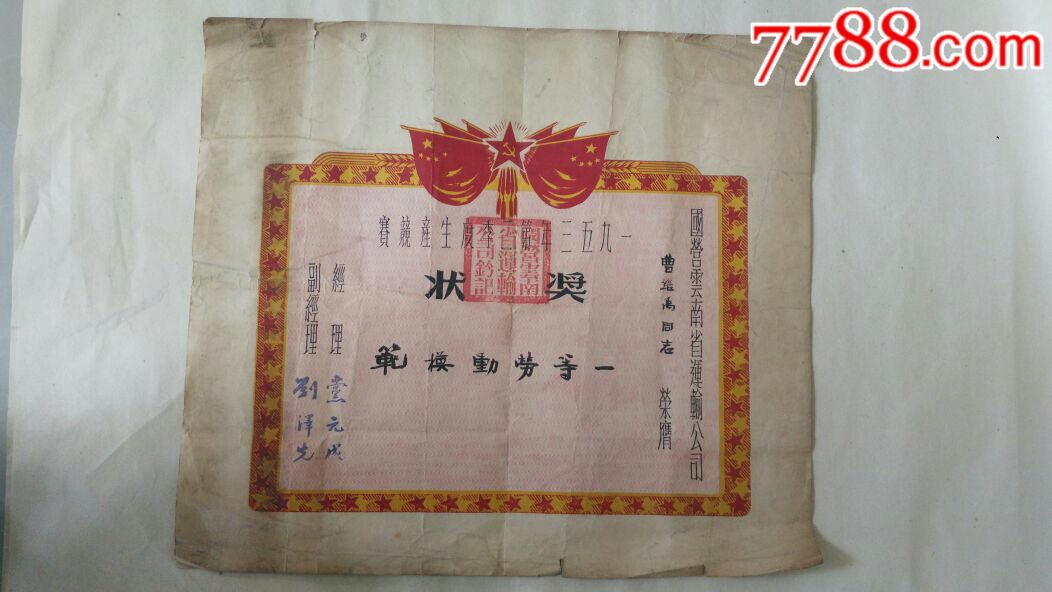 7788.com
國營雲南省運輸公司
曹維禹同志 榮膺
一九五三年第二季度生產競賽
獎狀
國營雲南省運輸公司鈐記
一等勞動模範
經理 黨元成
副經理 劉澤先